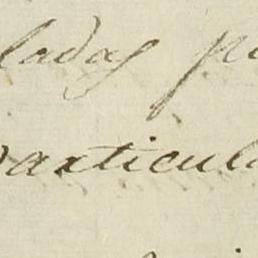 ladas p
articul